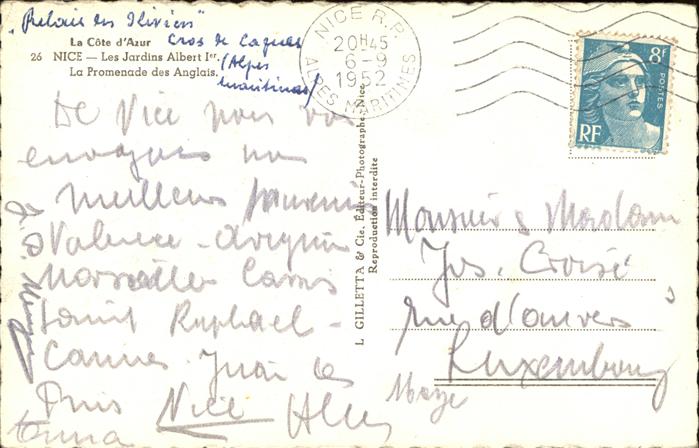 "Relais des
Cros de Cagnes
(Alpes
maritimes)
La Côte d'Azur
26 NICE — Les Jardins Albert Ier.
La Promenade des Anglais.
NICE R.P.
20H45
6-9
1952
ALPES MARITIMES
8F
POSTES
RF
De Nice nous vous
envoyons nos
meilleurs souvenirs
Valence - Avignon
Marseilles Cassis
Saint Raphael -
Cannes Juan les
Pins Nice
L GILLETTA & Cie, Editeur-Photographe, Nice
Reproduction interdite
Monsieur & Madame
Jos. Croisé
rue d'anvers
Luxembourg